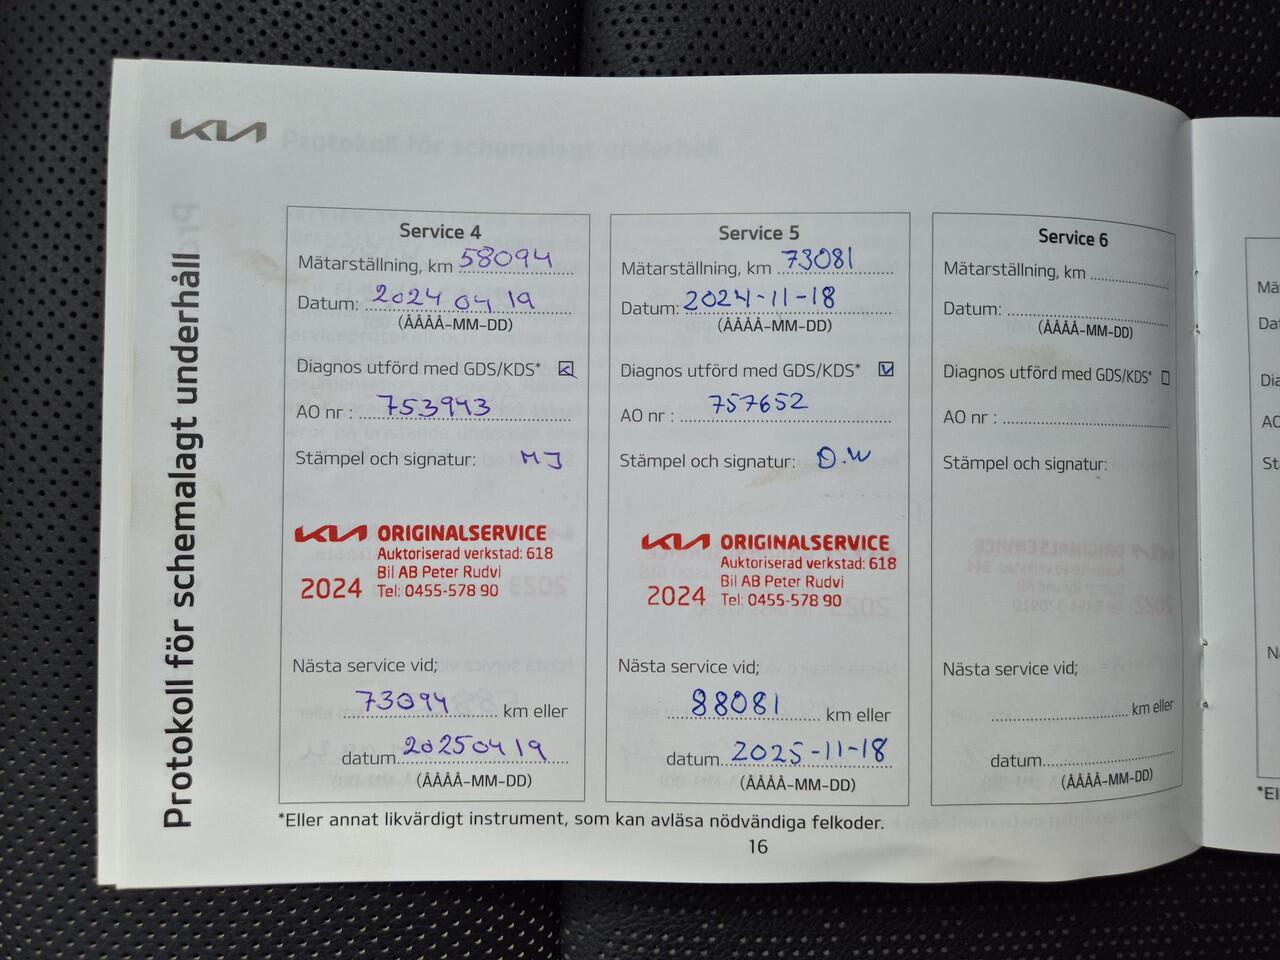 KIA
Protokoll för schemalagt underhåll
Service 4
Mätarställning, km 58094
Datum: 2024 04 19
(ÅÅÅÅ-MM-DD)
Diagnos utförd med GDS/KDS*
AO nr : 753943
Stämpel och signatur: MJ
KIA ORIGINALSERVICE
Auktoriserad verkstad: 618
Bil AB Peter Rudvi
2024 Tel: 0455-578 90
Nästa service vid;
73094 km eller
datum 20250419
(ÅÅÅÅ-MM-DD)
Service 5
Mätarställning, km 73081
Datum: 2024-11-18
(ÅÅÅÅ-MM-DD)
Diagnos utförd med GDS/KDS*
AO nr : 757652
Stämpel och signatur: O.W
KIA ORIGINALSERVICE
Auktoriserad verkstad: 618
Bil AB Peter Rudvi
2024 Tel: 0455-578 90
Nästa service vid;
88081 km eller
datum 2025-11-18
(ÅÅÅÅ-MM-DD)
Service 6
Mätarställning, km
Datum:
(ÅÅÅÅ-MM-DD)
Diagnos utförd med GDS/KDS*
AO nr :
Stämpel och signatur:
Nästa service vid;
km eller
datum
(ÅÅÅÅ-MM-DD)
*Eller annat likvärdigt instrument, som kan avläsa nödvändiga felkoder.
16